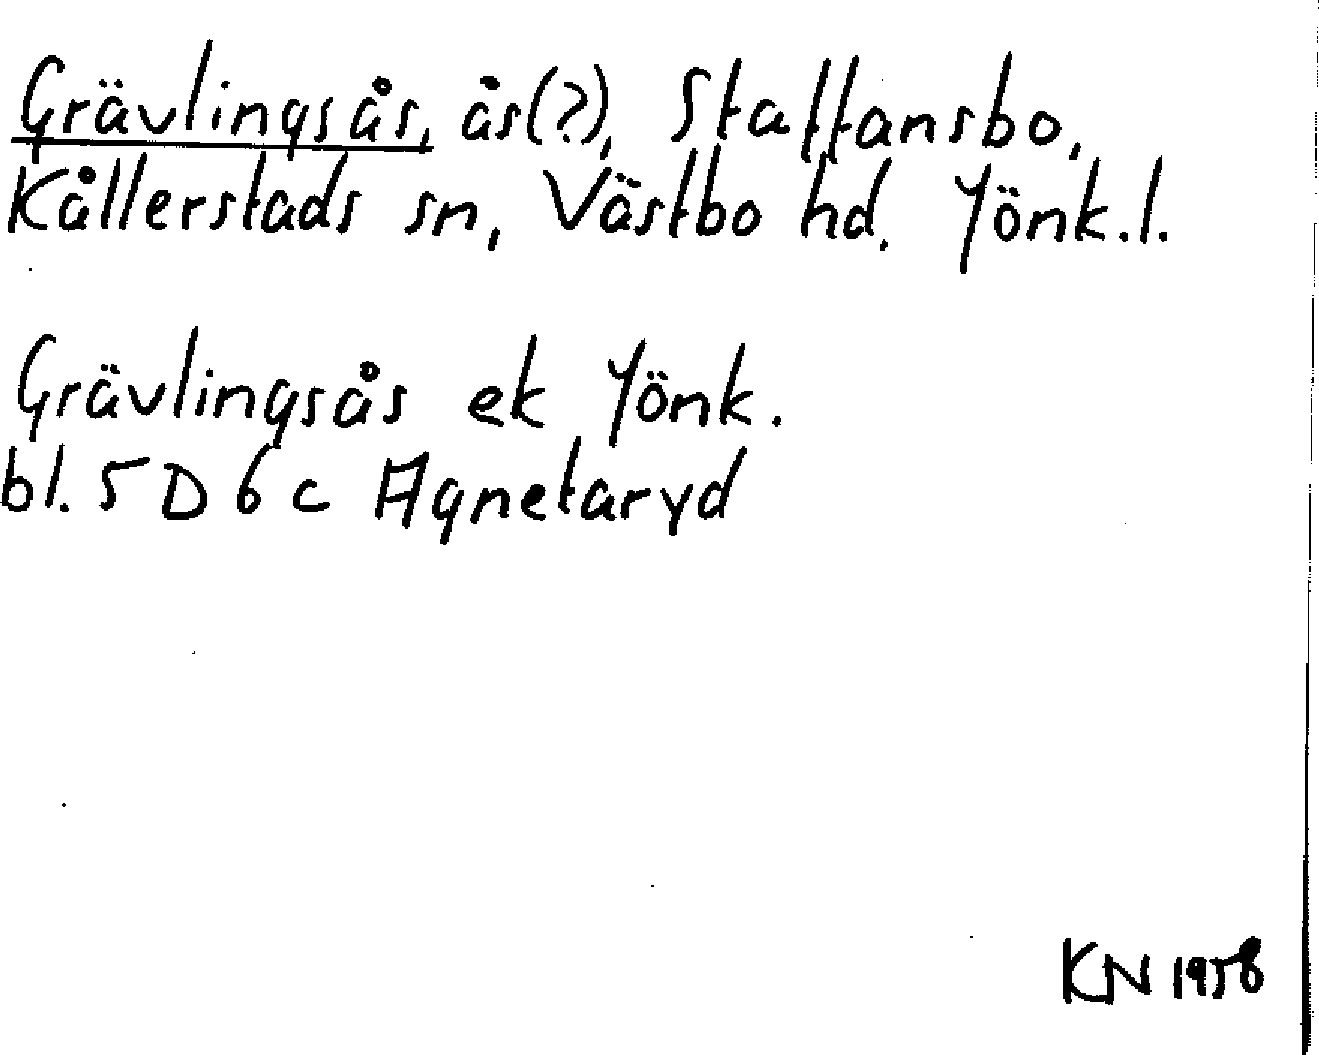 Grävlingsås, ås(?), Staffansbo,
Kållerstads sn, Västbo hd. Jönk.l.
Grävlingsås ek Jönk.
bl. 5 D 6 c Agnetaryd
KN 1958